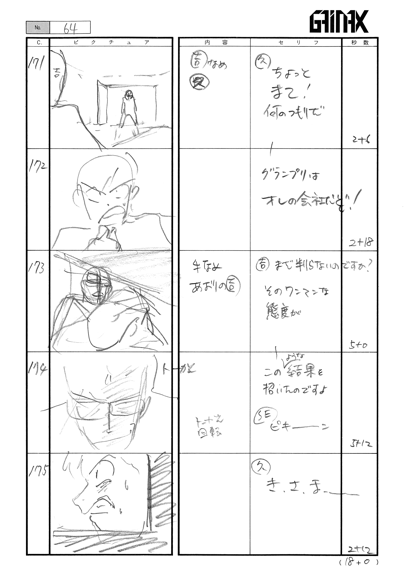 No. 64
GAINAX
C. ピクチュア 内容 セリフ 秒数
171
吉
吉なめ
久
久
ちょっと
まて!
何のつもりで
2+6
172
グランプリは
オレの会社だぞ!
2+18
173
牛なめ
あおりの吉
吉 まだ判らないのですか?
そのワンマンな
態度が
5+0
174
この ような 結果を
招いたのですよ
SE
ピキーーン
回転
5+12
175
久
き、さ、ま、——
2+12
(18+0)